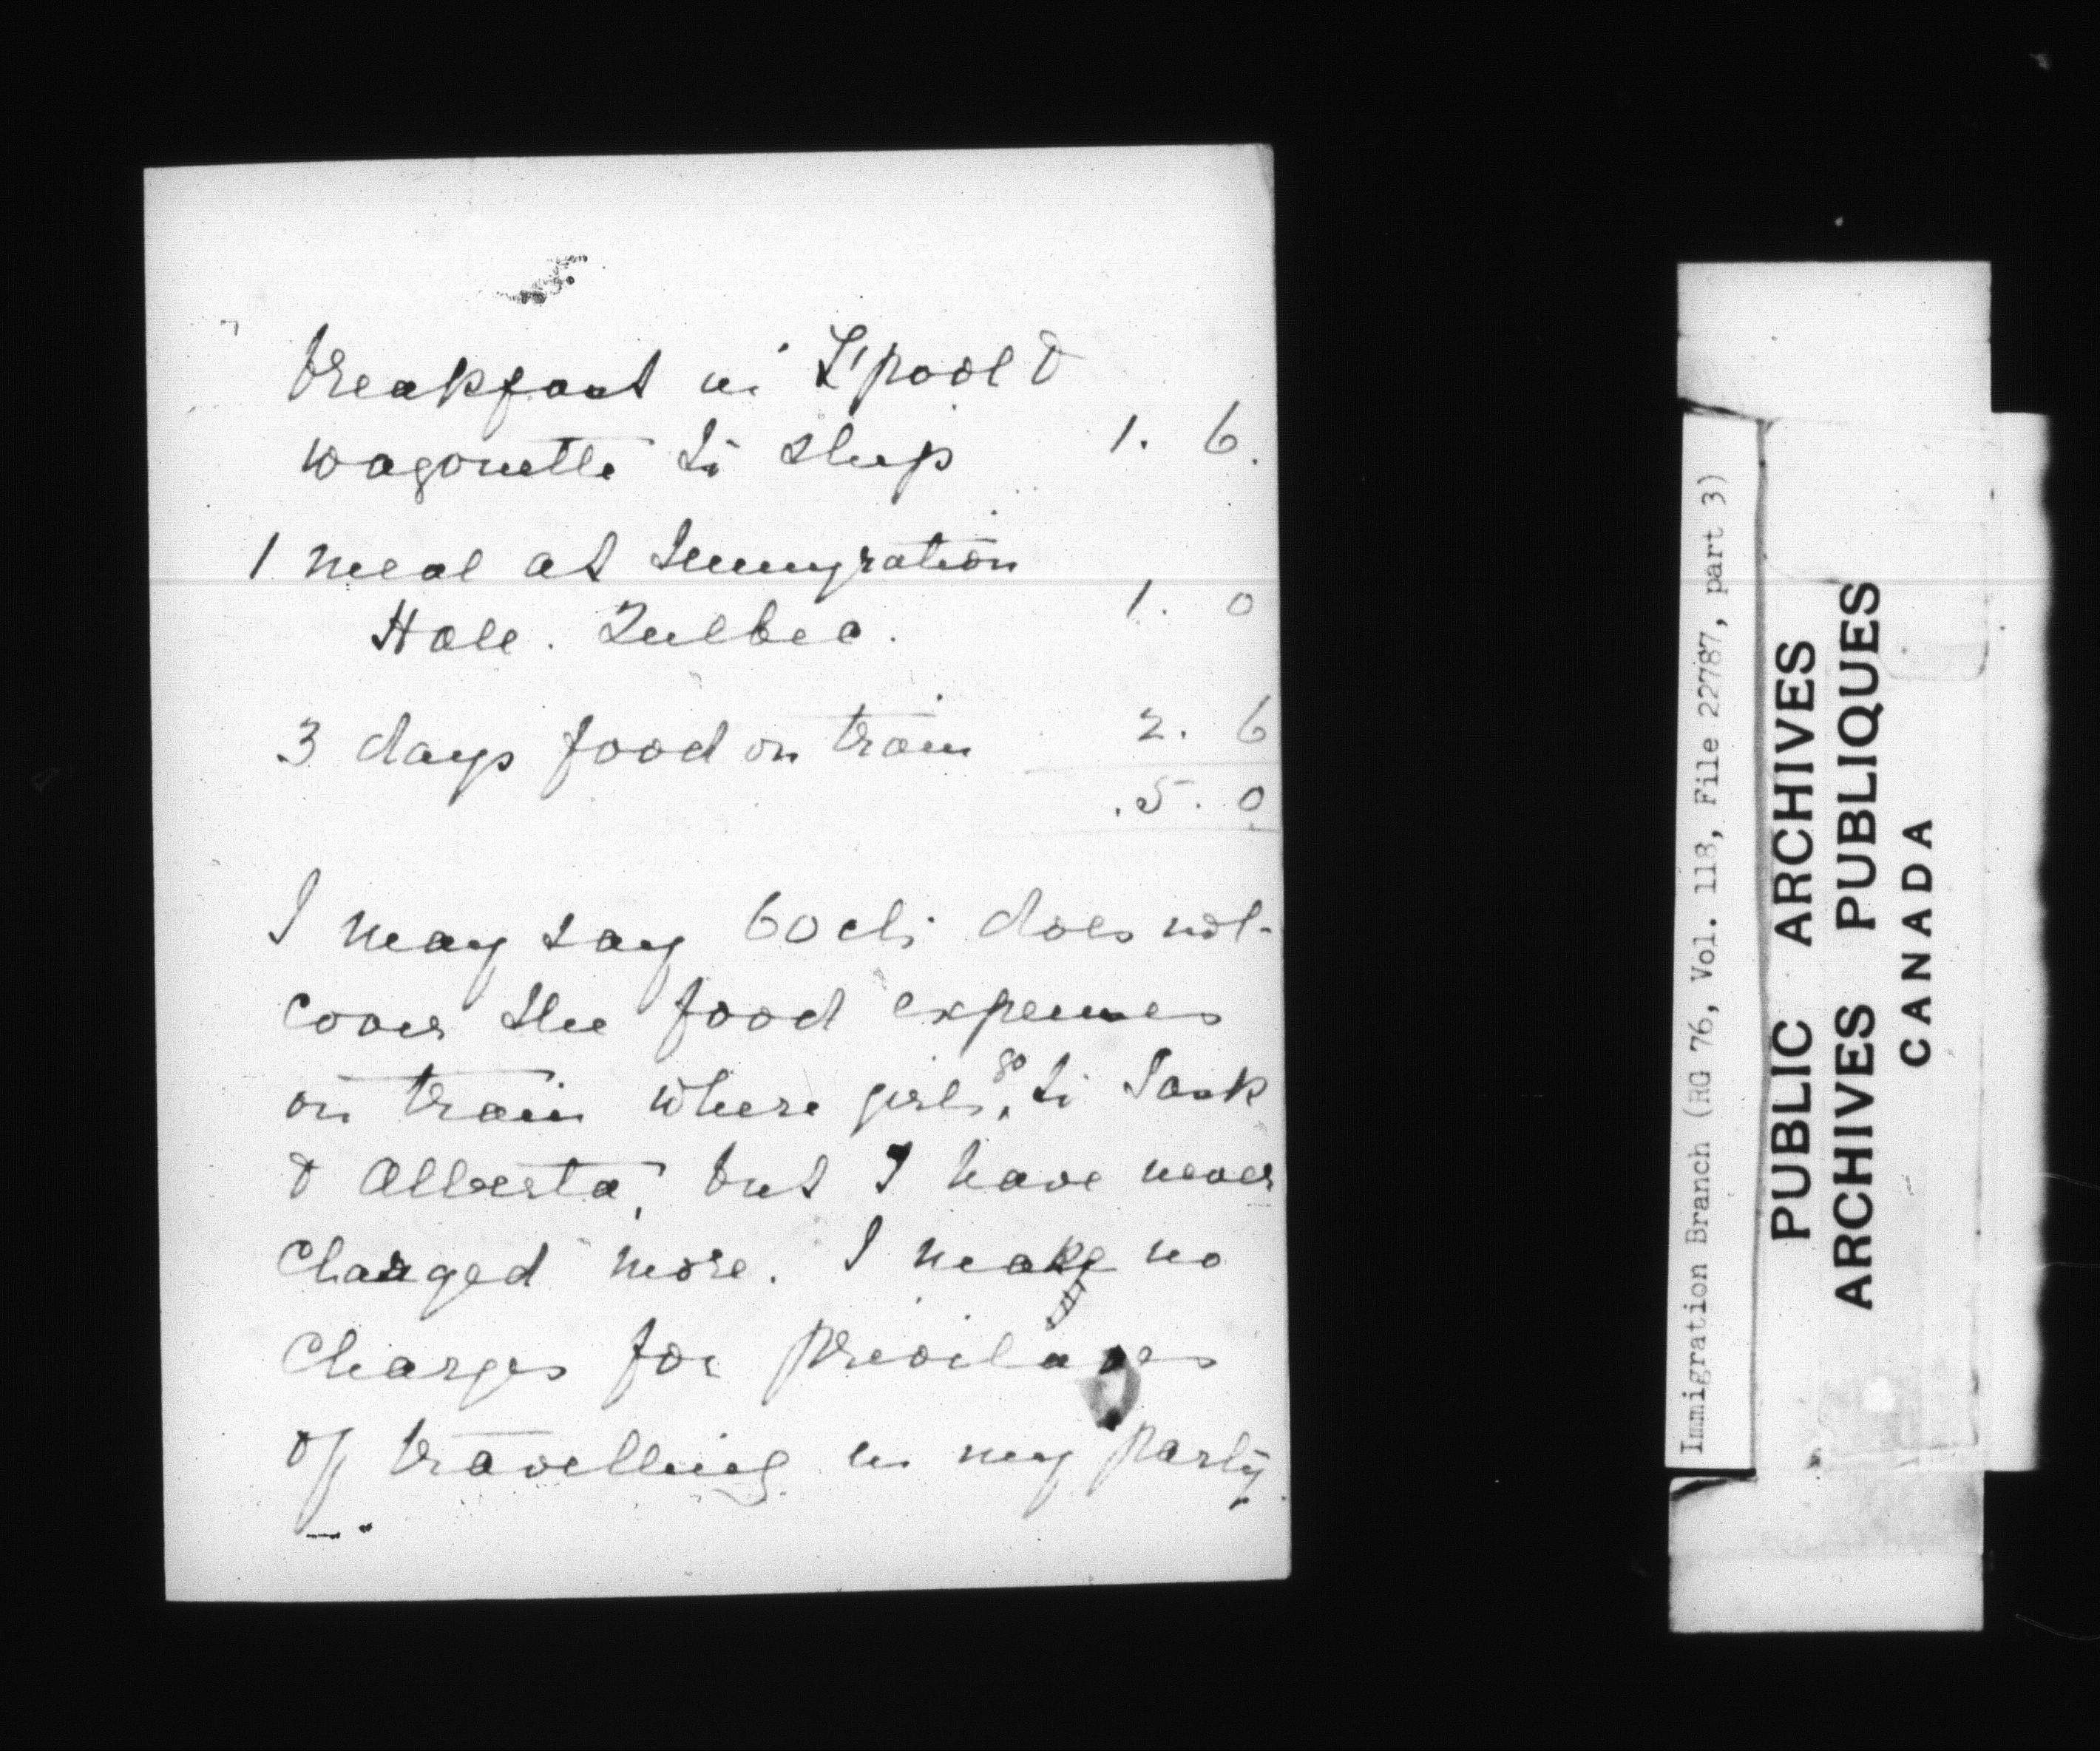 breakfast in L'pool &
wagonette to ship 1. 6.
1 meal at Immigration
Hall. Quebec. 1. 0
3 days food on train 2. 6
5. 0
I may say 60cts does not
cover the food expenses
on train where girls go to Sask
& Alberta, but I have never
charged more. I make no
charges for privilages
of travelling in my party
Immigration Branch (RG 76, Vol. 118, File 22787, part 3)
PUBLIC ARCHIVES
ARCHIVES PUBLIQUES
CANADA